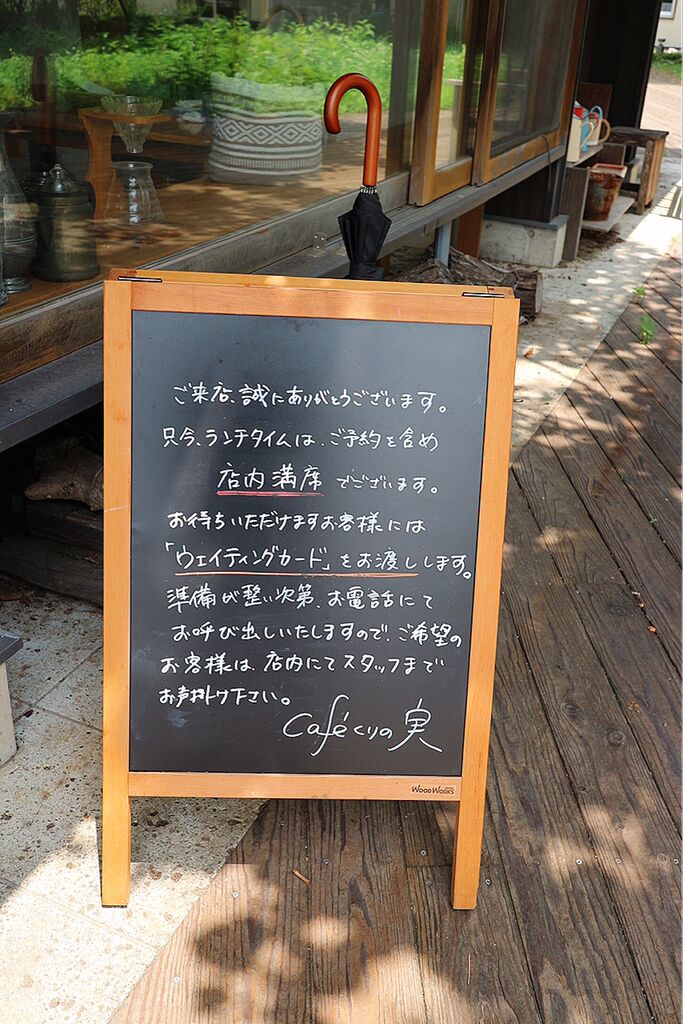 ご来店、誠にありがとうございます。
只今、ランチタイムは、ご予約を含め
店内満席でございます。
お待ちいただけますお客様には
「ウェイティングカード」をお渡しします。
準備が整い次第、お電話にて
お呼び出しいたしますので、ご希望の
お客様は、店内にてスタッフまで
お声掛け下さい。
Caféくりの実
WOOD WORKS